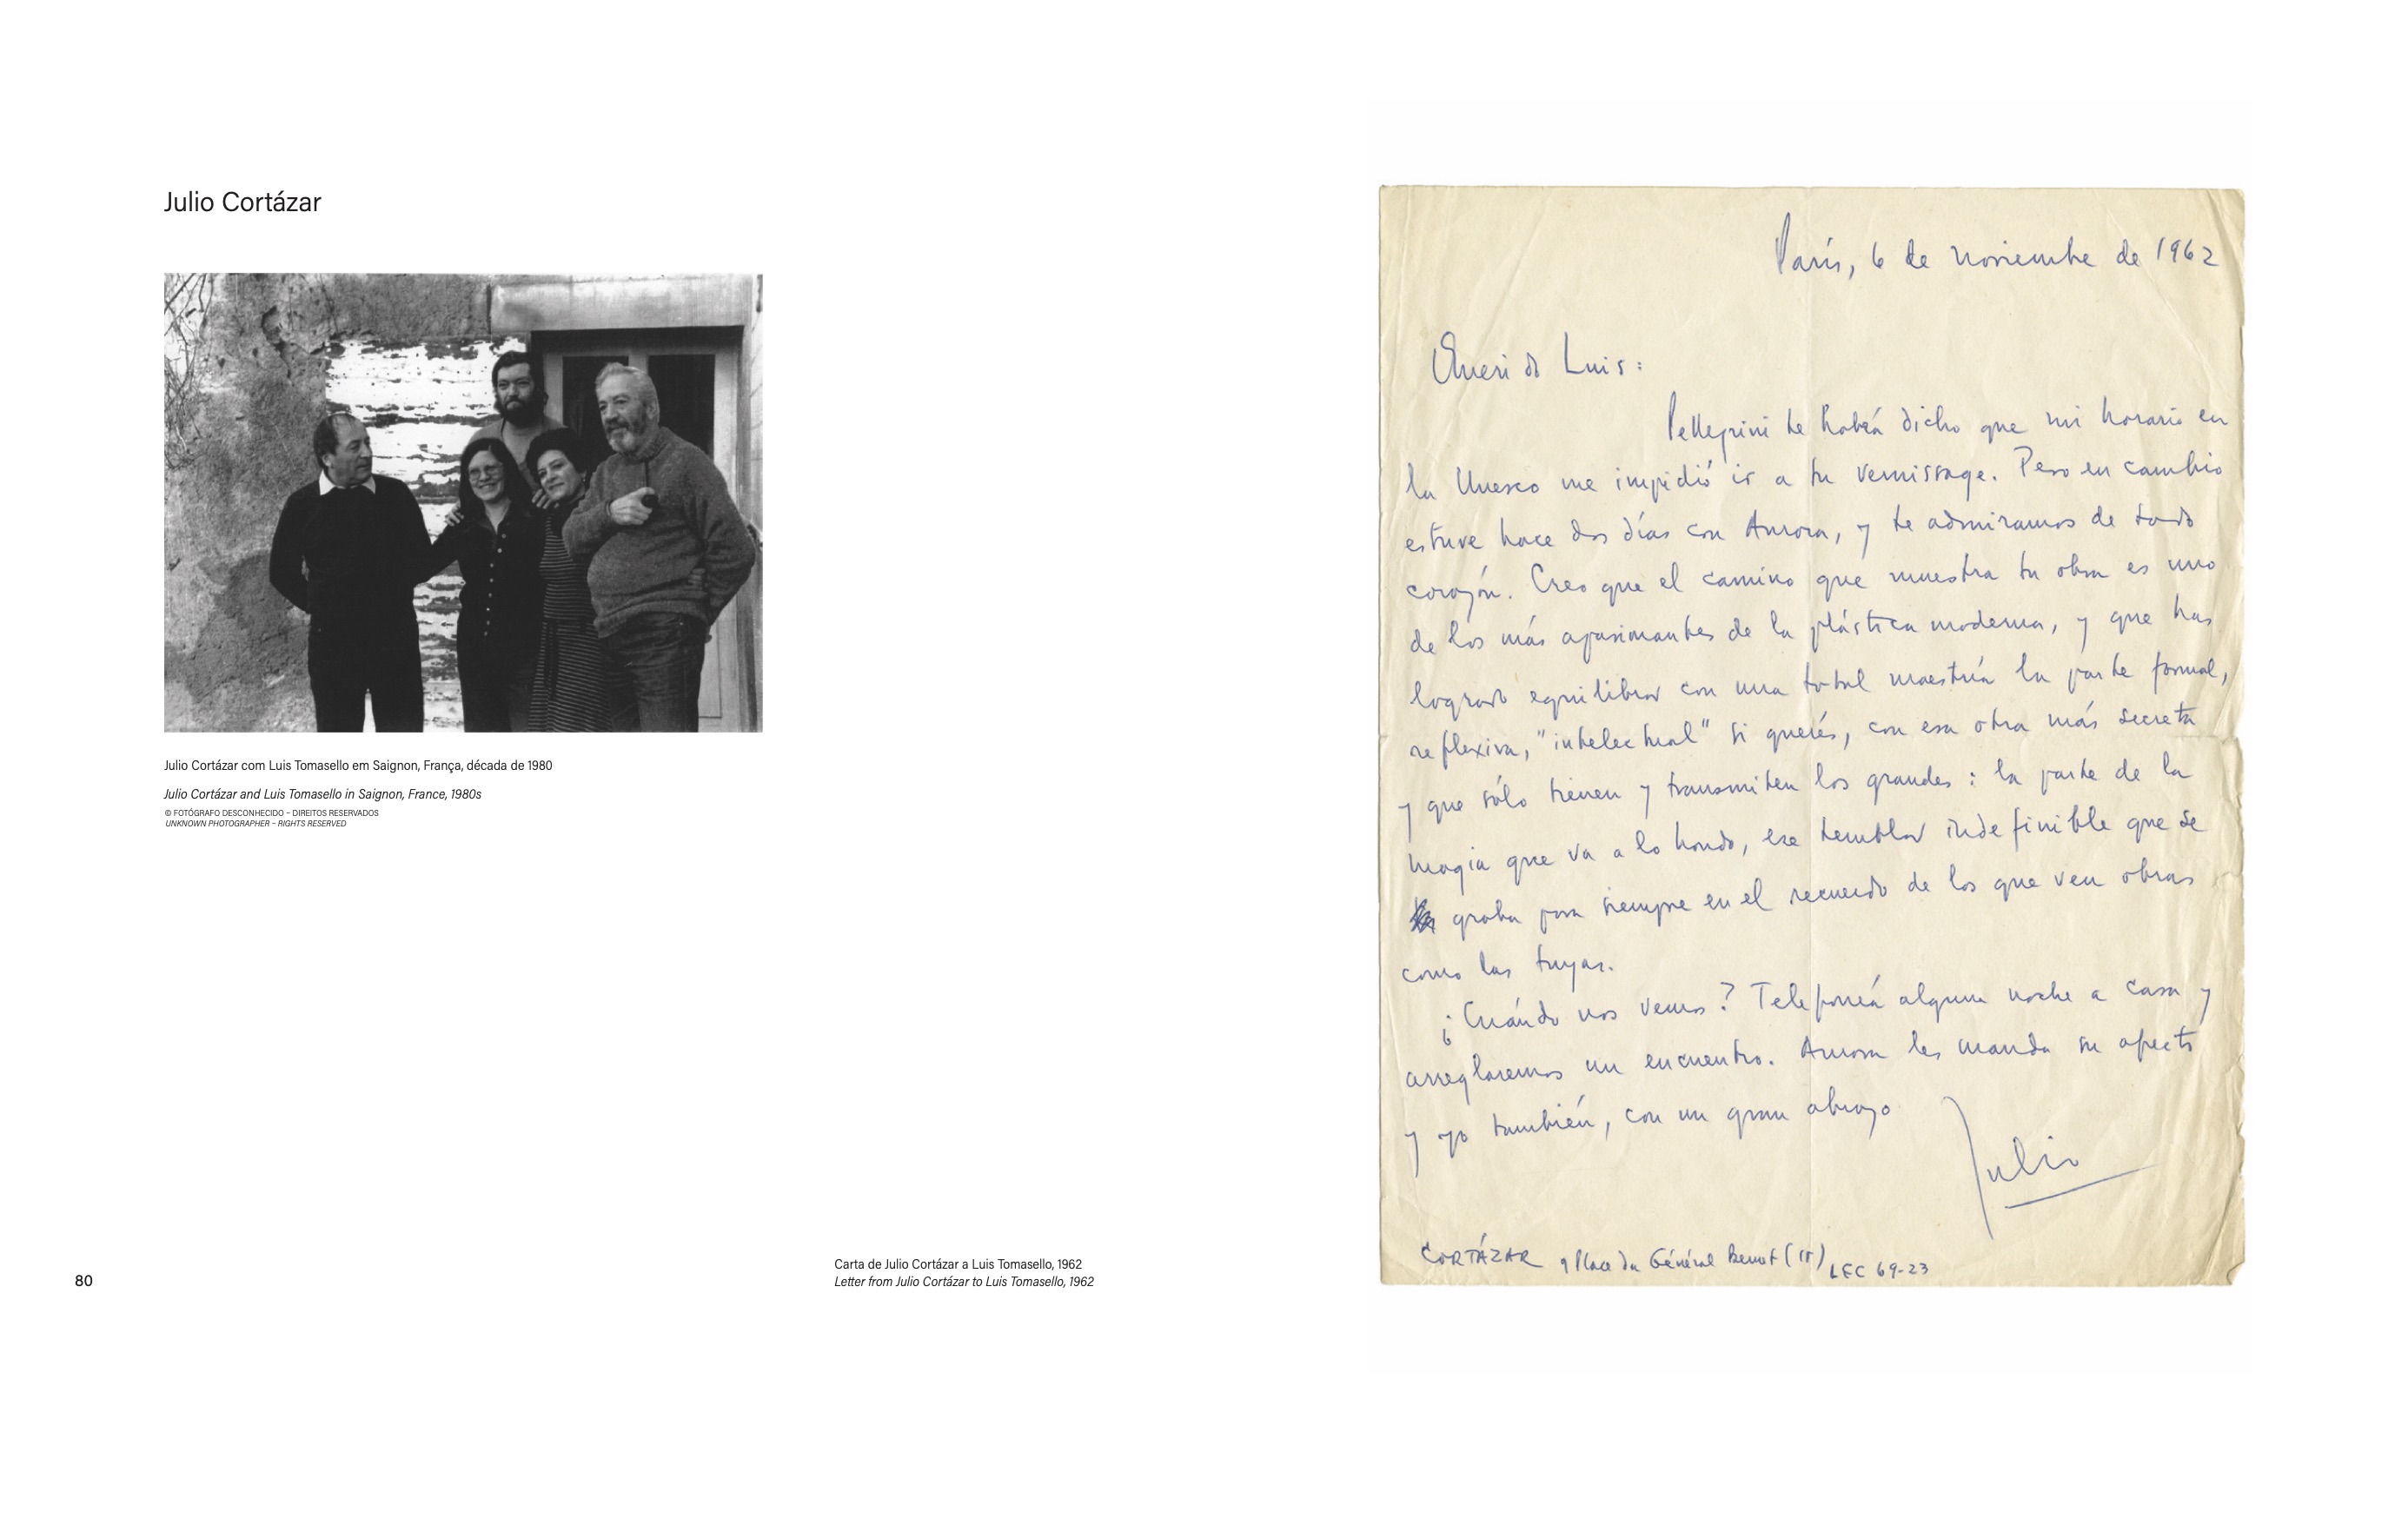 Julio Cortázar
Julio Cortázar com Luis Tomasello em Saignon, França, década de 1980
Julio Cortázar and Luis Tomasello in Saignon, France, 1980s
© FOTÓGRAFO DESCONHECIDO – DIREITOS RESERVADOS
UNKNOWN PHOTOGRAPHER – RIGHTS RESERVED
80
Carta de Julio Cortázar a Luis Tomasello, 1962
Letter from Julio Cortázar to Luis Tomasello, 1962
París, 6 de noviembre de 1962
Querido Luis:
Pellegrini te habrá dicho que mi horario en
la Unesco me impidió ir a tu vernissage. Pero en cambio
estuve hace dos días con Aurora, y te admiramos de todo
corazón. Creo que el camino que muestra tu obra es uno
de los más apasionantes de la plástica moderna, y que has
logrado equilibrar con una total maestría la parte formal,
reflexiva, "intelectual" si querés, con esa otra más secreta
y que sólo tienen y transmiten los grandes: la parte de la
magia que va a lo hondo, ese temblor indefinible que se
graba para siempre en el recuerdo de los que ven obras
como las tuyas.
¿Cuándo nos vemos? Telefoneá alguna noche a casa y
arreglaremos un encuentro. Aurora les manda su afecto
y yo también, con un gran abrazo
Julio
CORTÁZAR 9 Place du Général Beuret (15) LEC 69-23